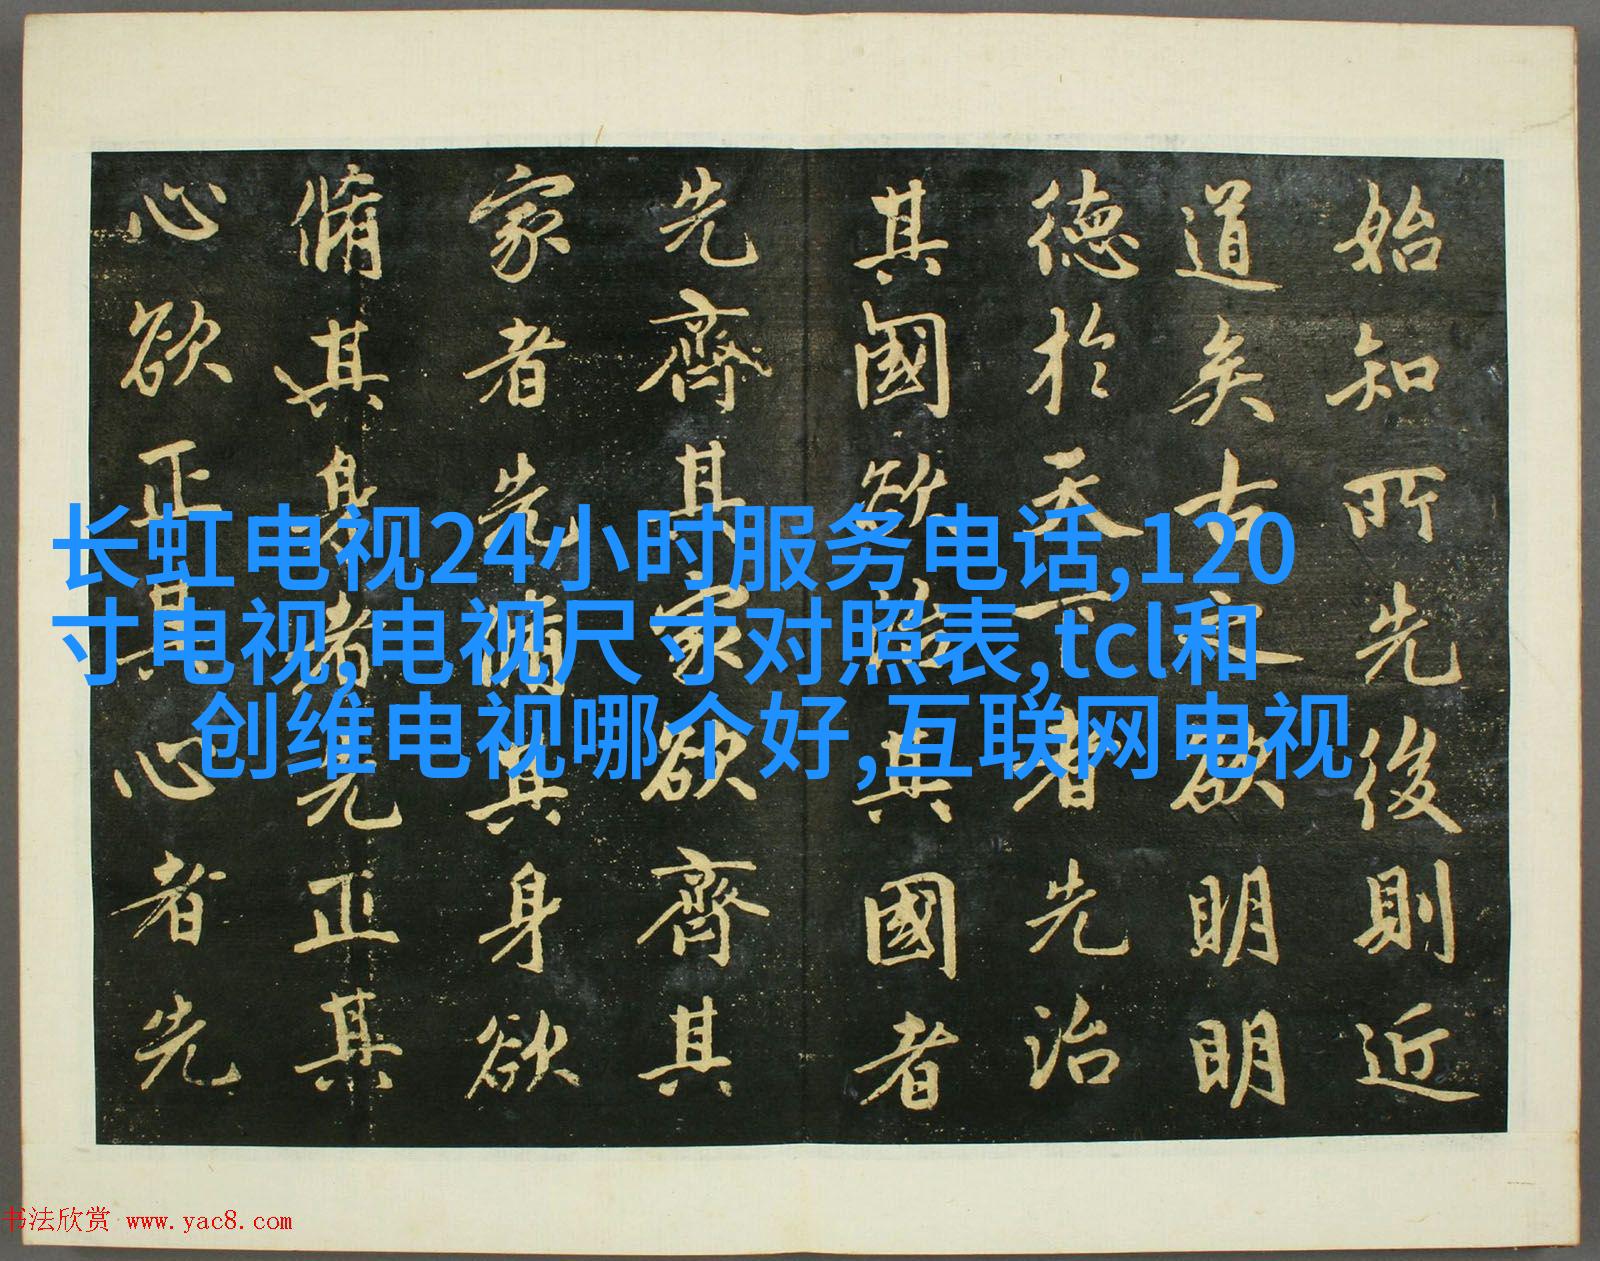 始知所先後則近
道矣古之欲明明
德於天下者先治
其國欲治其國者
先齊其家欲齊其
家者先脩其身欲
脩其身者先正其
心欲正其心者先
长虹电视24小时服务电话,120
寸电视,电视尺寸对照表,tcl和
创维电视哪个好,互联网电视
书法欣赏 www.yac8.com